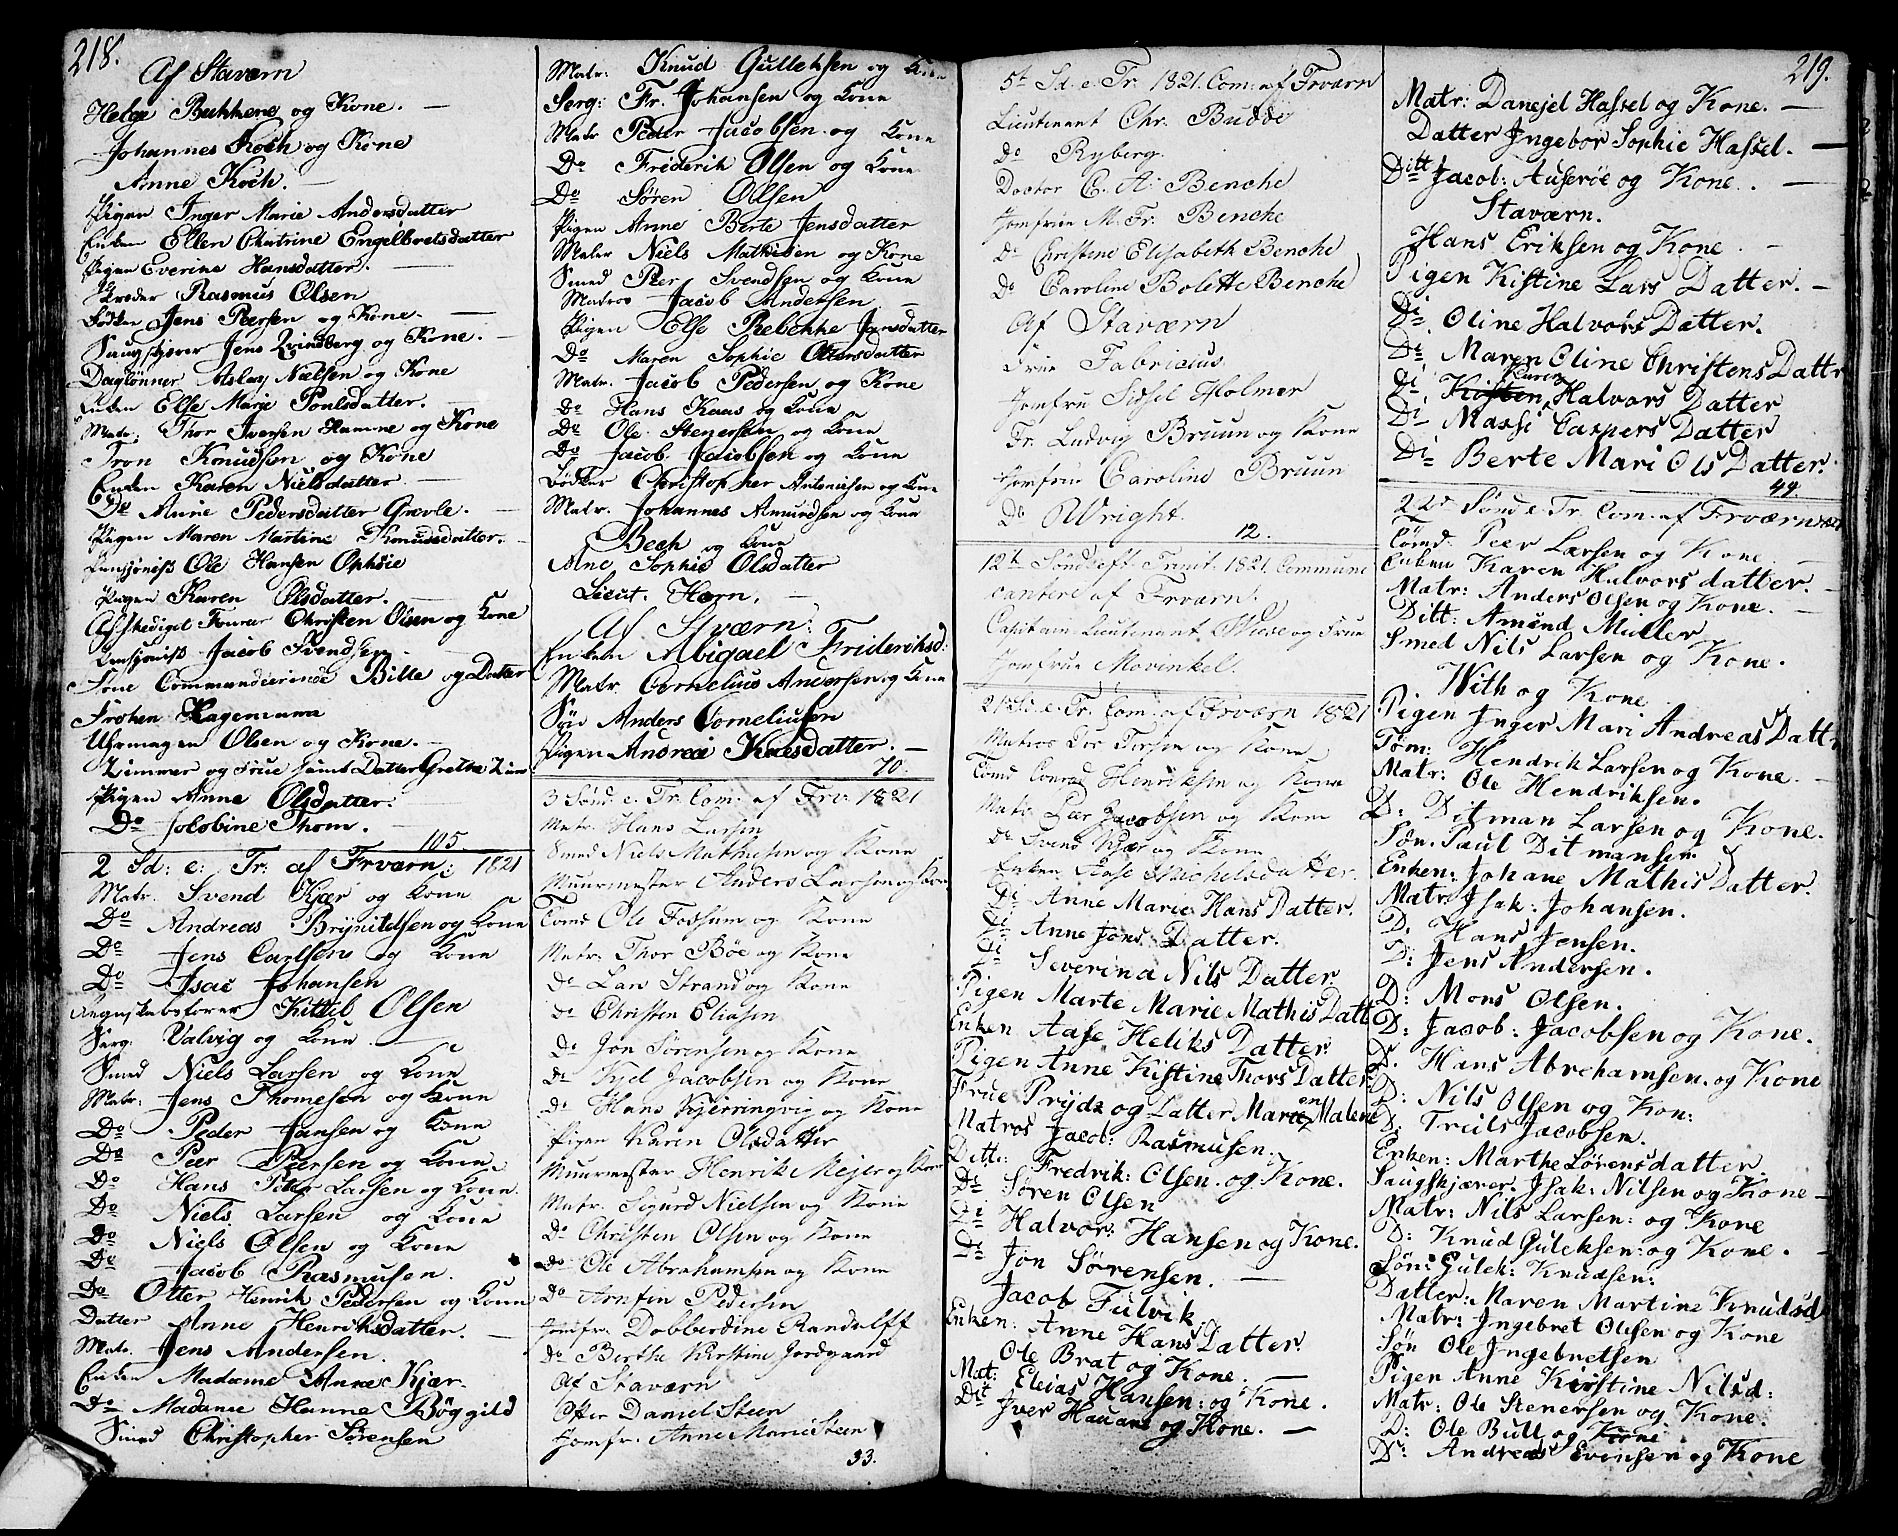 218.
Af Staværn
Helge Bukkene og Kone.
Johannes Koch og Kone
Anne Koch.
Pigen Inger Marie Andersdatter
Enken Ellen Chatrine Engelbretsdatter
Pigen Everine Hansdatter.
Rasmus Olsen
Jens Peersen og Kone.
Jens Qvindberg og Kone.
Daglønner Aslag Nielsen og Kone
Enken Else Marie Poulsdatter.
Matr: Thor Iversen Hamne og Kone
Tron Knudsen og Kone
Enken Karen Nielsdatter
Do Anne Pedersdatter Grevle.
Pigen Maren Martine Knudsdatter.
Pensjonist Ole Hansen
Pigen Karen Olsdatter.
Afskediget Christen Olsen og Kone
Pensjonist Jacob Svendsen
Commanderende Bille og Datter
Frøken Hagemann
Uhrmagen Olsen og Kone.
Zimmer og Frue samt Datter Grethe Zim
Pigen Anne Olsdatter.
Do Jacobine Thom.
105.
2 Sd: e: Tr: af Frværn: 1821
Matr. Svend Kjær og Kone
Do Andreas Brynildsen og Kone
Do Jens Carlsen og Kone
Do Isac Johansen
Regnskabsfører Kittil Olsen
Serg: Valvig og Kone
Smed Niels Larsen og Kone
Matr: Jens Thomesen og Kone
Do Peder Jansen og Kone
Do Peer Peersen og Kone
Do Hans Peter Larsen og Kone
Do Niels Larsen og Kone
Do Niels Olsen og Kone
Do Jacob Rasmusen.
Do Otter Henrik Pedersen og Kone
Datter Anne Henriksdatter.
Matr. Jens Andersen.
Enken Madame Anne Kjær
Do Madame Hanne Bøggild
Smed Christopher Sørensen
Matr. Knud Gulleksen og Kone
Serg: Fr. Johansen og Kone
Matr Peder Jacobsen og Kone
Do Friderik Olsen og Kone
Do Søren Olsen
Pigen Anne Berte Jensdatter
Maler Niels Mathisen og Kone
Smed Peer Svendsen og Kone
Matros Jacob Andersen
Pigen Else Rebekke Jansdatter
Do Maren Sophie Ottersdatter
Matr. Jacob Pedersen og Kone
Do Hans Kaas og Kone
Do Ole Stenersen og Kone
Do Jacob Jacobsen og Kone
Bødker Christopher Antoniesen og Kone
Matr. Johannes Amundsen og Kone
Bech og Kone
Ane Sophie Olsdatter
Lieut. Horn.
Af Stværn:
Enken Abigael Frideriksd:
Matr. Cornelius Andersen og Kone
Søn Anders Corneliusen
Pigen Andrea Knudsdatter.
70.
3 Sønd: e: Tr. Com: af Frv: 1821
Matr. Hans Larsen
Smed Niels Mathiesen og Kone
Muurmester Anders Larsen og Kone
Tømd Ole Fossum og Kone
Matr: Thor Böe og Kone
Do Lars Strand og Kone
Do Christen Eliasen
Do Jon Sørensen og Kone
Do Kjel Jacobsen og Kone
Do Hans Kjerringvig og Kone
Pigen Karen Olsdatter
Muurmester Henrik Mejer og Kone
Matr. Sigurd Nielsen og Kone
Do Christen Olsen og Kone
Do Ole Abrahamsen og Kone
Do Arnfin Pedersen
Jomfr. Dobberdine Randulff
Do Berthe Kirstine Jordgaard
Af Staværn
Daniel Steen
Jomfr. Anne Marie Steen
33.
5t Sd. e. Tr. 1821. Com: af Frværn
Lieutenant Chr. Budde
Do Ryberg.
Doctor C. A. Benche
Jomfrue M. Fr. Benche
Do Christine Elisabeth Benche
Do Caroline Bolette Benche
Af Staværn
Frue Fabricius
Jomfru Sidsel Holmer
Fr. Ludvig Bruun og Kone
Jomfrue Caroline Bruun
Do Wright.
12.
12te Sönd: eft. Trinit: 1821. Commune
cantere af Frværn.
Capitain Lieutenant Wiese og Frue
Jomfrue Mevinkel.
21 Sd. e. Tr. Com: af Frværn 1821
Matros og Kone
Tömd Conrad Henriksen og Kone
Matr Peer Jacobsen og Kone
Do Svend Kjær og Kone
Enken Aase Michelsdatter.
Di Anne Marie Hans Datter.
Di Anne Jens Datter.
Di Severina Nils Datter
Pigen Marte Marie Mathis Datt
Enken Aase Heliks Datter
Pigen Anne Kistine Thors Datter
Frue Prydz og Datter Maren Malene
Matros Jacob: Rasmusen.
Ditt: Fredrik: Olsen. og Kone.
Di Søren Olsen
Di Halvor: Hansen og Kone.
Di Jon Sørensen.
Jacob Fulvik
Enken: Anne Hans Datter.
Ole Brat og Kone.
Mat: Eleias Hansen: og Kone.
Dit Iver Hauan og Kone.
219.
Matr: Danejel Hassel og Kone.
Datter Ingebor Sophie Hassel.
Ditt Jacob: Auserøe og Kone.
Staværn.
Hans Eriksen og Kone.
Pigen Kistine Lars Datter.
Di Oline Halvors Datter.
Di Maren Oline Christens Datt
Di Karen Halvors Datter
Di Massi Caspers Datter
Di Berte Mari Ols Datter.
44.
22d Sönd e: Tr. Com: af Frværn
Tömd. Peer Larsen og Kone
Enken Karen Halvors datter.
Matr: Anders Olsen og Kone.
Ditt: Amund Muller
Smed Nils Larsen og Kone.
With og Kone
Pigen Inger Mari Andreas Datt
Tøm: Hendrik Larsen og Kone.
Matr: Ole Hendriksen.
D: Ditman Larsen og Kone.
Søn. Paul Ditmansen.
Enken: Johane Mathis Datter.
Matr: Isak: Johansen.
D. Hans Jensen.
D: Jens Andersen.
D: Mons Olsen.
D: Jacob: Jacobsen og Kone.
D. Hans Abrehamsen. og Kone
D: Nils Olsen og Kon:
D. Truls Jacobsen.
Enken: Marthe Sörens datter.
Saugskjærer Isak: Nilsen og Kone
Matr: Nils Larsen: og Kone
D: Knud Guleksen: og Kone.
Søn: Gulek: Knudsen:
Datter: Maren Martine Knudsd
Matr: Ingebret Olesen og Kone
Søn Ole Ingebretsen
Pigen Anne Kirstine Nilsd:
Matr: Ole Stenersen og Kone.
D: Ole Bull og Kone
Di Andreas Evensen og Kone